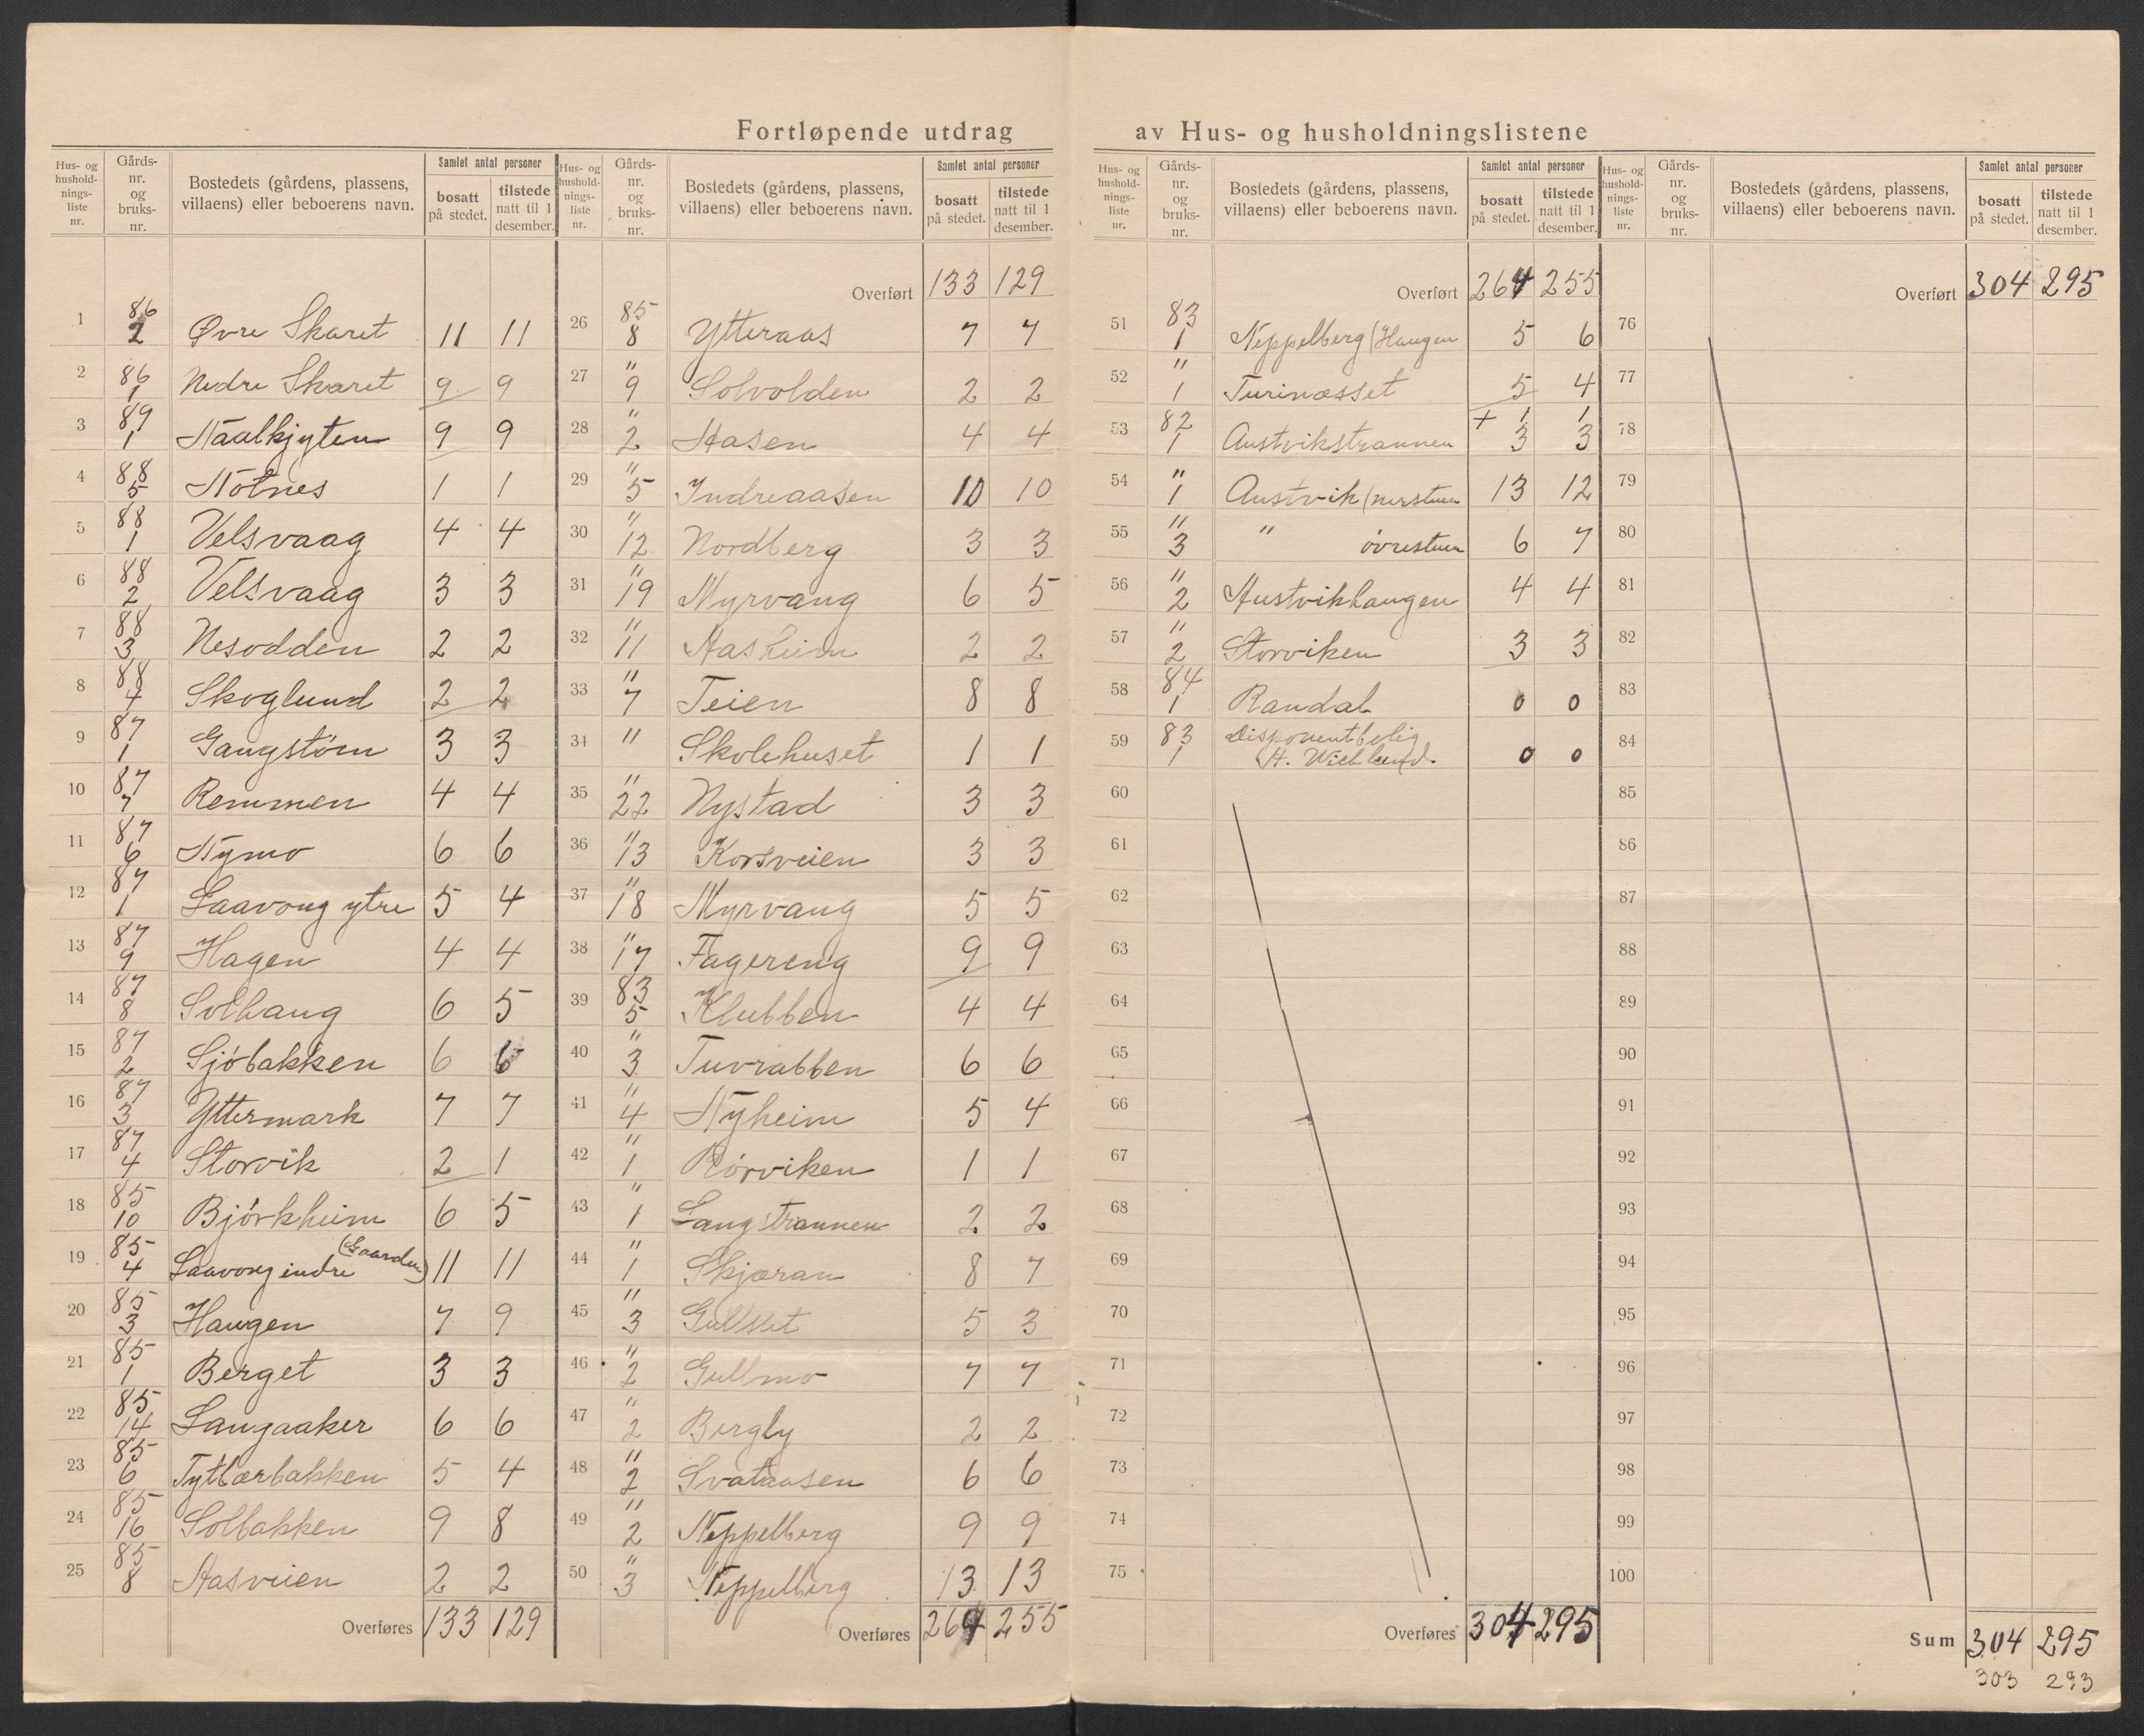 Fortløpende utdrag av Hus- og husholdningslistene
Hus- og hushold-nings-liste nr. | Gårds-nr. og bruks-nr. | Bostedets (gårdens, plassens, villaens) eller beboerens navn. | Samlet antal personer | bosatt på stedet. | tilstede natt til 1 desember.
1 86 2 Øvre Skaret 11 11
2 86 1 Nedre Skaret 9 9
3 89 1 Naalkjyten 9 9
4 88 5 Notnes 1 1
5 88 1 Velsvaag 4 4
6 88 2 Velsvaag 3 3
7 88 3 Nesodden 2 2
8 88 4 Skoglund 2 2
9 87 1 Gangstøen 3 3
10 87 7 Remmen 4 4
11 87 6 Nymo 6 6
12 87 1 Laavong ytre 5 4
13 87 9 Hagen 4 4
14 87 8 Solhaug 6 5
15 87 2 Sjöbakken 6 6
16 87 3 Yttermark 7 7
17 87 4 Storvik 2 1
18 85 10 Björkheim 6 5
19 85 4 Laavong indre (Gaarden) 11 11
20 85 3 Haugen 7 9
21 85 1 Berget 3 3
22 85 14 Langaaker 6 6
23 85 6 Tytbærbakken 5 4
24 85 16 Solbakken 9 8
25 85 8 Aasveien 2 2
Overføres 133 129
Hus- og hushold-nings-liste nr. | Gårds-nr. og bruks-nr. | Bostedets (gårdens, plassens, villaens) eller beboerens navn. | Samlet antal personer | bosatt på stedet. | tilstede natt til 1 desember.
Overført 133 129
26 85 8 Ytteraas 7 7
27 " 9 Solvolden 2 2
28 " 2 Aasen 4 4
29 " 5 Indreaasen 10 10
30 " 12 Nordberg 3 3
31 " 19 Myrvang 6 5
32 " 11 Aasheim 2 2
33 " 7 Teien 8 8
34 " Skolehuset 1 1
35 " 22 Nystad 3 3
36 " 13 Korsveien 3 3
37 " 18 Myrvang 5 5
38 " 17 Fagereng 9 9
39 83 5 Klubben 4 4
40 " 3 Tuvrabben 6 6
41 " 4 Nyheim 5 4
42 " 1 Rörviken 1 1
43 " 1 Langstrannen 2 2
44 " 1 Skjæran 8 7
45 " 3 Gullset 5 3
46 " 2 Gullmo 7 7
47 " 2 Bergly 2 2
48 " 2 Svataasen 6 6
49 " 2 Neppelberg 9 9
50 " 3 Neppelberg 13 13
Overføres 264 255
Hus- og hushold-nings-liste nr. | Gårds-nr. og bruks-nr. | Bostedets (gårdens, plassens, villaens) eller beboerens navn. | Samlet antal personer | bosatt på stedet. | tilstede natt til 1 desember.
Overført 264 255
51 83 1 Neppelberg (Haugen 5 6
52 " 1 Turinæsset 5 4
+ 1 1
53 82 1 Austvikstrannen 3 3
54 " 1 Austvik (nerstuen 13 12
55 " 3 " övrestuen 6 7
56 " 2 Austvikhaugen 4 4
57 " 2 Storviken 3 3
58 84 1 Randal 0 0
59 83 1 Disponentbolig
H. Wichlund. 0 0
60
61
62
63
64
65
66
67
68
69
70
71
72
73
74
75
Overføres 304 295
Hus- og hushold-nings-liste nr. | Gårds-nr. og bruks-nr. | Bostedets (gårdens, plassens, villaens) eller beboerens navn. | Samlet antal personer | bosatt på stedet. | tilstede natt til 1 desember.
Overført 304 295
76
77
78
79
80
81
82
83
84
85
86
87
88
89
90
91
92
93
94
95
96
97
98
99
100
Sum 304 295
303 293